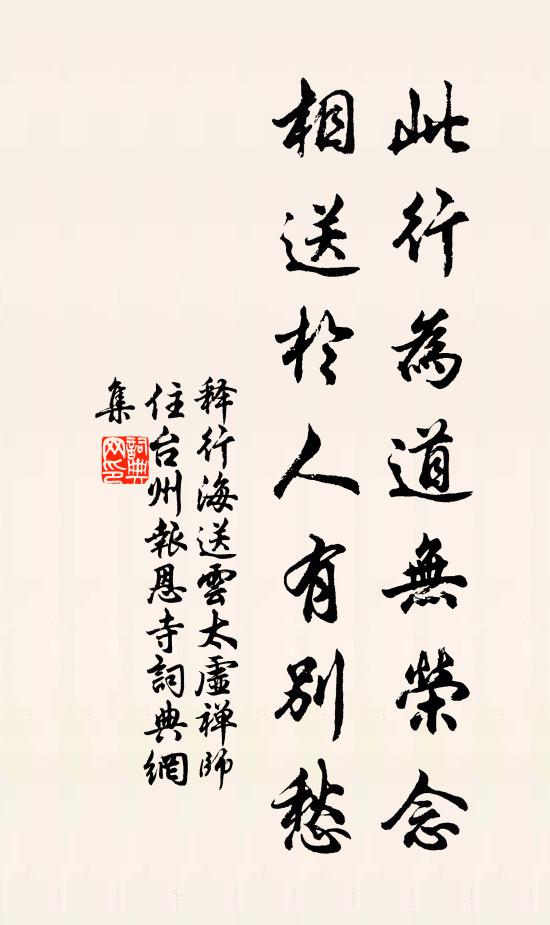 此行為道無榮念
相送於人有別愁
释行海送雲太虛禅師
住台州報恩寺詞典網
集
詞典
网印